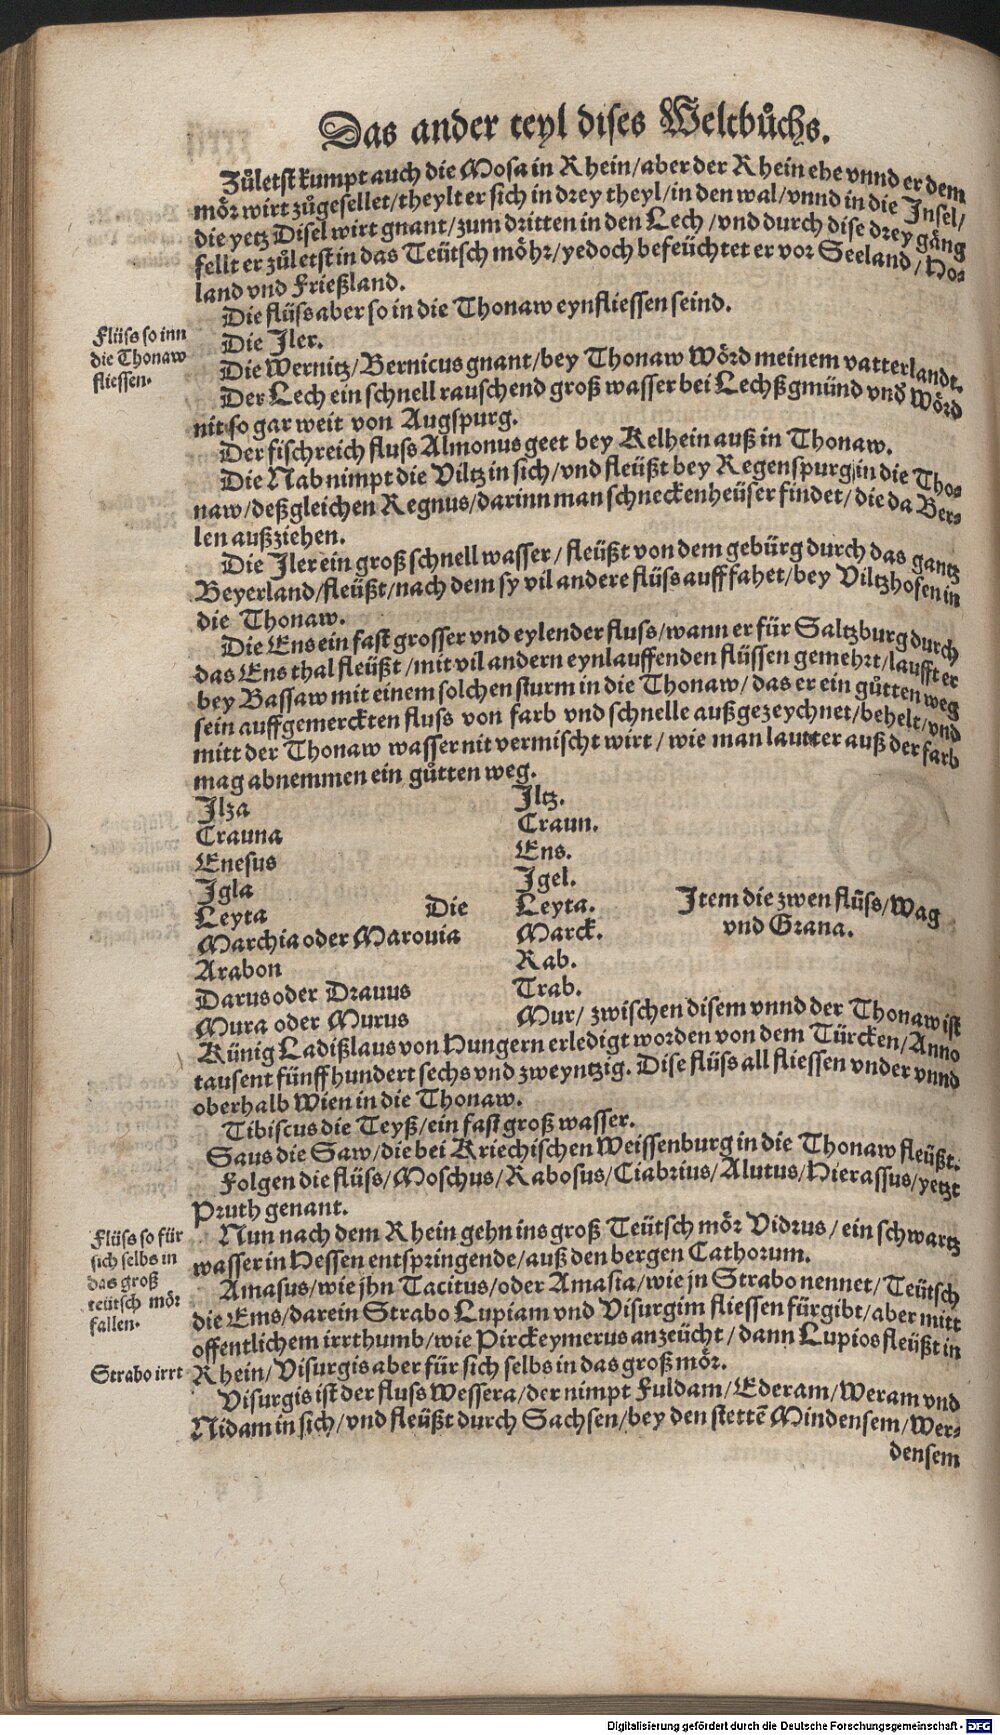 Das ander teyl dises Weltbůchs.
Zůletst kumpt auch die Mosa in Rhein/aber der Rhein ehe vnnd er dem
mör wirt zůgesellet/theylt er sich in drey theyl/in den wal/vnnd in die Insel/
die yetz Disel wirt gnant/zum dritten in den Lech/vnd durch dise drey gäng
fellt er zůletst in das Teütsch möhr/yedoch befeüchtet er vor Seeland/Ho-
land vnd Frießland.
Die flüss aber so in die Thonaw eynfliessen seind.
Flüss so inn
die Thonaw
fliessen.
Die Iler.
Die Wernitz/Bernicus gnant/bey Thonaw Wörd meinem vatterlandt.
Der Lech ein schnell rauschend groß wasser bei Lechßgmünd vnd Wörd
nit so gar weit von Augspurg.
Der fischreich fluss Almonus geet bey Kelhein auß in Thonaw.
Die Nab nimpt die Viltz in sich/vnd fleüßt bey Regenspurg in die Tho-
naw/deßgleichen Regnus/darinn man schneckenheüser findet/die da Ber-
len außziehen.
Die Iler ein groß schnell wasser/fleüßt von dem gebürg durch das gantz
Beyerland/fleüßt/nach dem sy vil andere flüss auff fahet/bey Viltzhofen in
die Thonaw.
Die Ens ein fast grosser vnd eylender fluss/wann er für Saltzburg durch
das Ens thal fleüßt/mit vil andern eynlauffenden flüssen gemehrt/laufft er
bey Bassaw mit einem solchen sturm in die Thonaw/das er ein gůtten weg
sein auffgemerckten fluss von farb vnd schnelle außgezeychnet/behelt/vnd
mitt der Thonaw wasser nit vermischt wirt/wie man lautter auß der farb
mag abnemmen ein gůtten weg.
Ilza Iltz.
Crauna Craun.
Enesus Ens.
Igla Igel.
Leyta Die Leyta. Item die zwen flüss/Wag
Marchia oder Marouia Marck. vnd Grana.
Arabon Rab.
Darus oder Drauus Trab.
Mura oder Murus Mur/zwischen disem vnnd der Thonaw ist
Künig Ladißlaus von Hungern erledigt worden von dem Türcken/Anno
tausent fünffhundert sechs vnd zweyntzig. Dise flüss all fliessen vnder vnnd
oberhalb Wien in die Thonaw.
Tibiscus die Teyß/ein fast groß wasser.
Saus die Saw/die bei Kriechischen Weissenburg in die Thonaw fleüßt.
Folgen die flüss/Moschus/Rabosus/Ciabrius/Alutus/Hierassus/yetzt
Pruth genant.
Flüss so für
sich selbs in
das groß
teütsch mör
fallen.
Nun nach dem Rhein gehn ins groß Teütsch mör Vidrus/ein schwartz
wasser in Hessen entspringende/auß den bergen Cathorum.
Amasus/wie jhn Tacitus/oder Amasia/wie jn Strabo nennet/Teütsch
die Ems/darein Strabo Lupiam vnd Visurgim fliessen fürgibt/aber mitt
offentlichem irrthumb/wie Pirckeymerus anzeücht/dann Lupios fleüßt in
Strabo irrt
Rhein/Visurgis aber für sich selbs in das groß mör.
Visurgis ist der fluss Wessera/der nimpt Fuldam/Ederam/Weram vnd
Nidam in sich/vnd fleüßt durch Sachsen/bey den stettē Mindensem/Wer-
densem
Digitalisierung gefördert durch die Deutsche Forschungsgemeinschaft - DFG